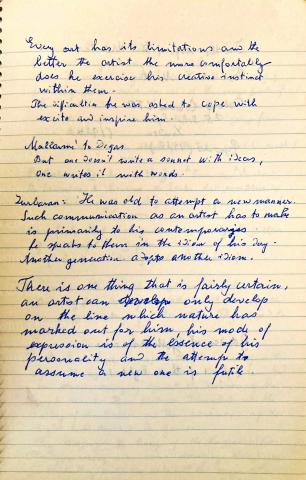 Every art has its limitations and the
better the artist the more comfortably
does he exercise his creative instinct
within them.
The difficulties he was asked to cope with
excite and inspire him.
Mallarmé to Degas
But one doesn't write a sonnet with ideas,
one writes it with words.
Zurbaran: He was old to attempt a new manner.
Such communication as an artist has to make
is primarily to his contemporaries.
he speaks to them in the idiom of his day.
Another generation adopts another idiom.
There is one thing that is fairly certain,
an artist can only develop
on the line which nature has
marked out for him, his mode of
expression is of the essence of his
personality and the attempt to
assume a new one is futile.